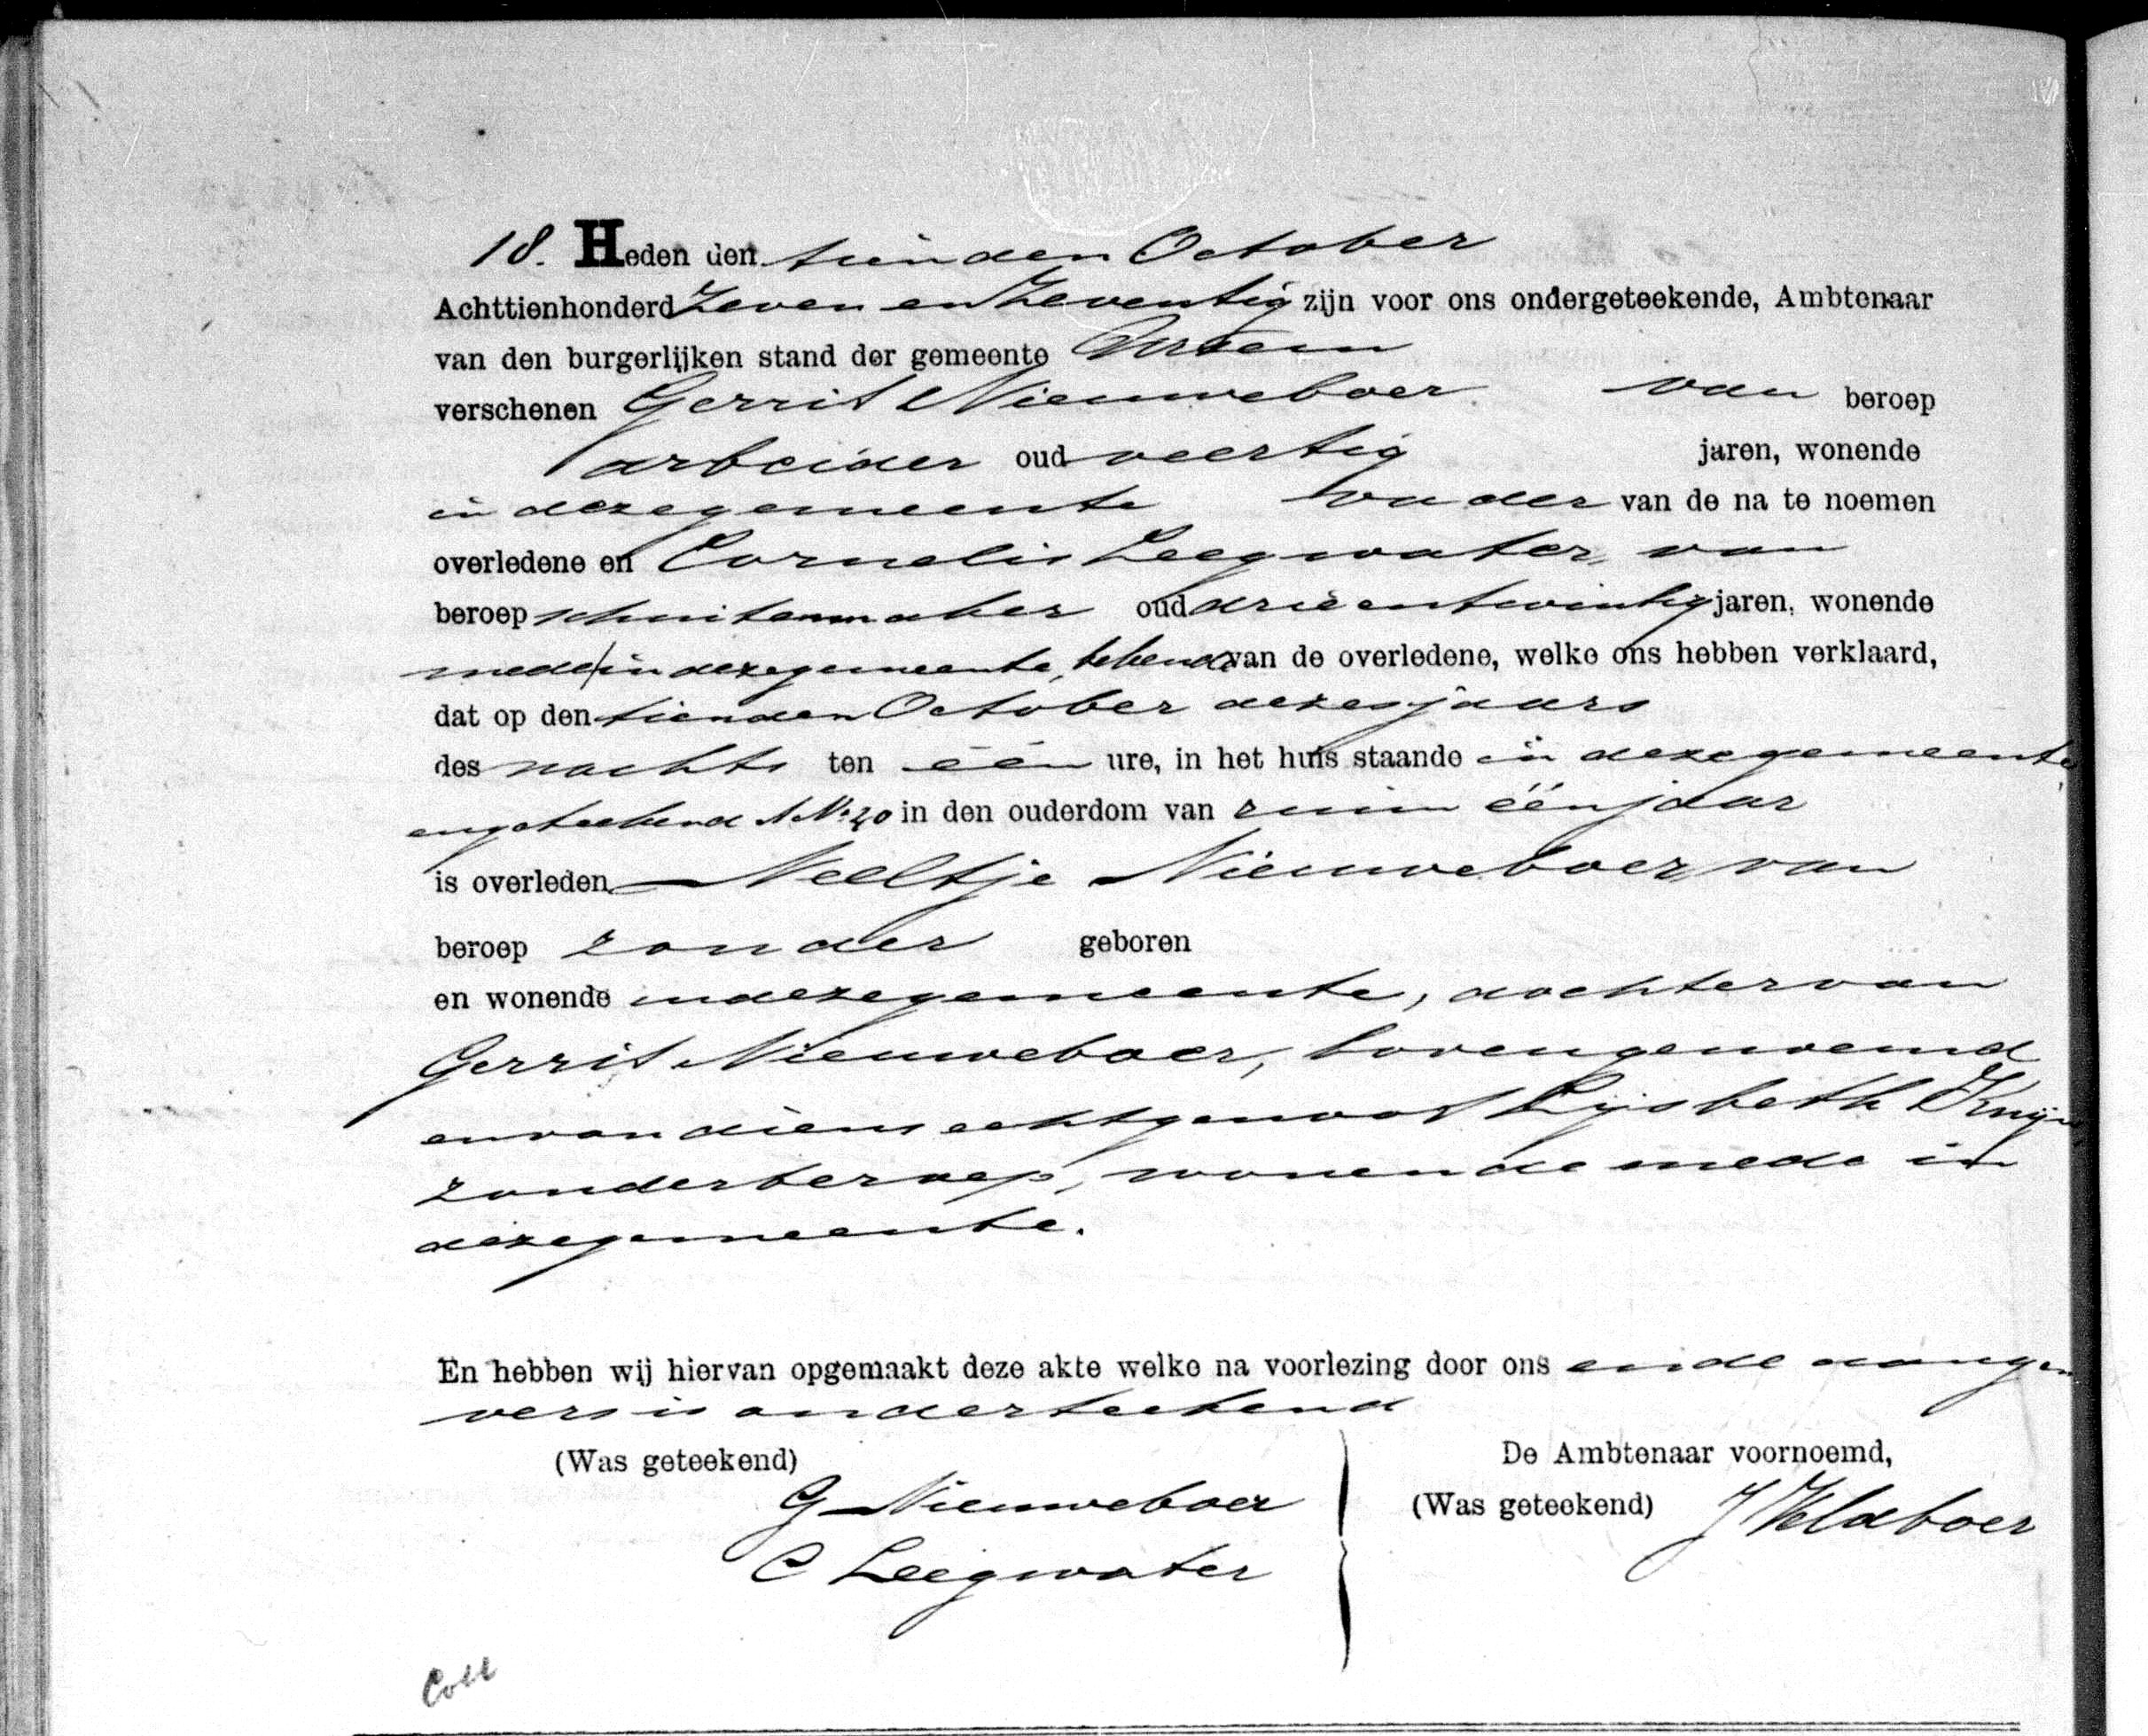 18. Heden den tienden October
Achttienhonderd Zeven en Zeventig zijn voor ons ondergeteekende, Ambtenaar
van den burgerlijken stand der gemeente Ursem
verschenen Gerrit Nieuweboer van beroep
arbeider oud veertig jaren, wonende
in deze gemeente vader van de na te noemen
overledene en Cornelis Leegwater, van
beroep schuitenmaker oud drieëntwintig jaren, wonende
mede in deze gemeente, bekende van de overledene, welke ons hebben verklaard,
dat op den tienden October dezes jaars
des nachts ten één ure, in het huis staande in deze gemeente,
en geteekend A No 40 in den ouderdom van ruim één jaar
is overleden Neeltje Nieuweboer, van
beroep zonder geboren
en wonende in deze gemeente, dochter van
Gerrit Nieuweboer, bovengenoemd
en van diens echtgenoot Lijsbeth Knijn
zonder beroep, wonende mede in
deze gemeente.
En hebben wij hiervan opgemaakt deze akte welke na voorlezing door ons en de aange
vers is onderteekend
(Was geteekend) De Ambtenaar voornoemd,
G Nieuweboer (Was geteekend) J Veldboer
C Leegwater
Coll